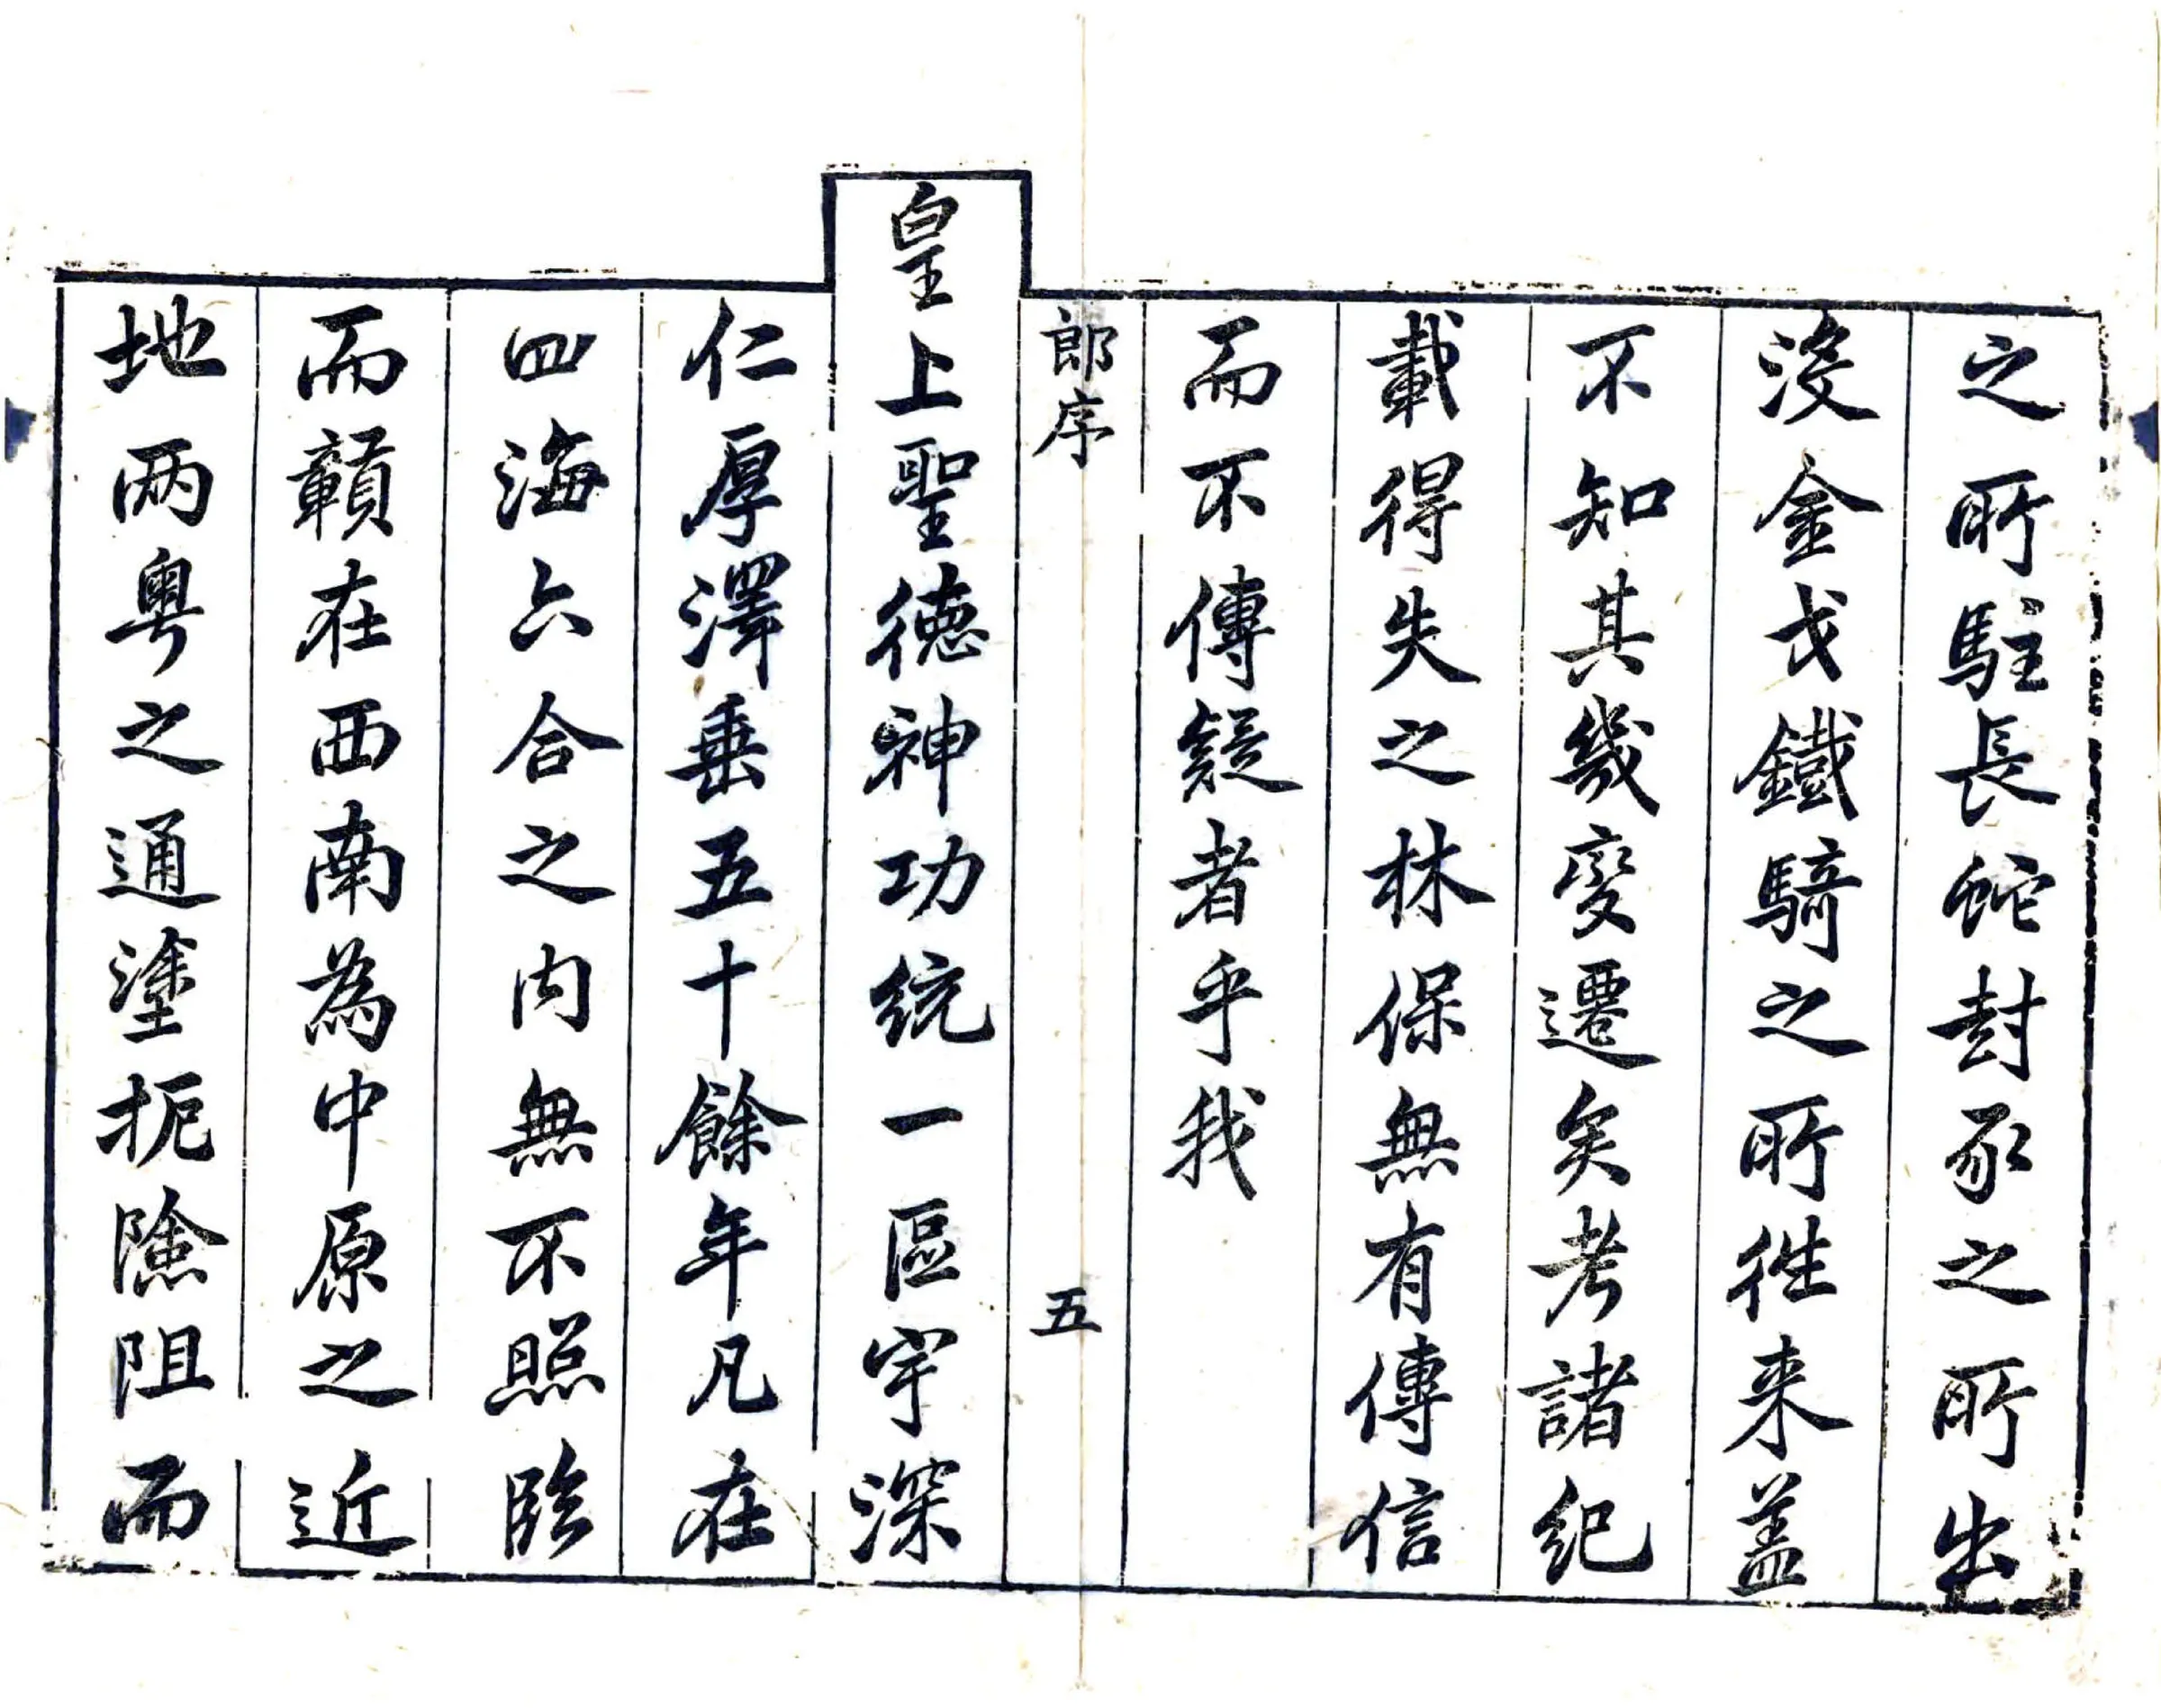 之所駐長蛇封豕之所出
沒金戈鐵騎之所徃来盖
不知其幾變遷矣考諸紀
載得失之林保無有傳信
而不傳疑者乎我
郎序
五
皇上聖德神功統一區宇深
仁厚澤垂五十餘年凡在
四海六合之内無不照臨
而贛在西南為中原之近
地兩粵之通塗扼險阻而